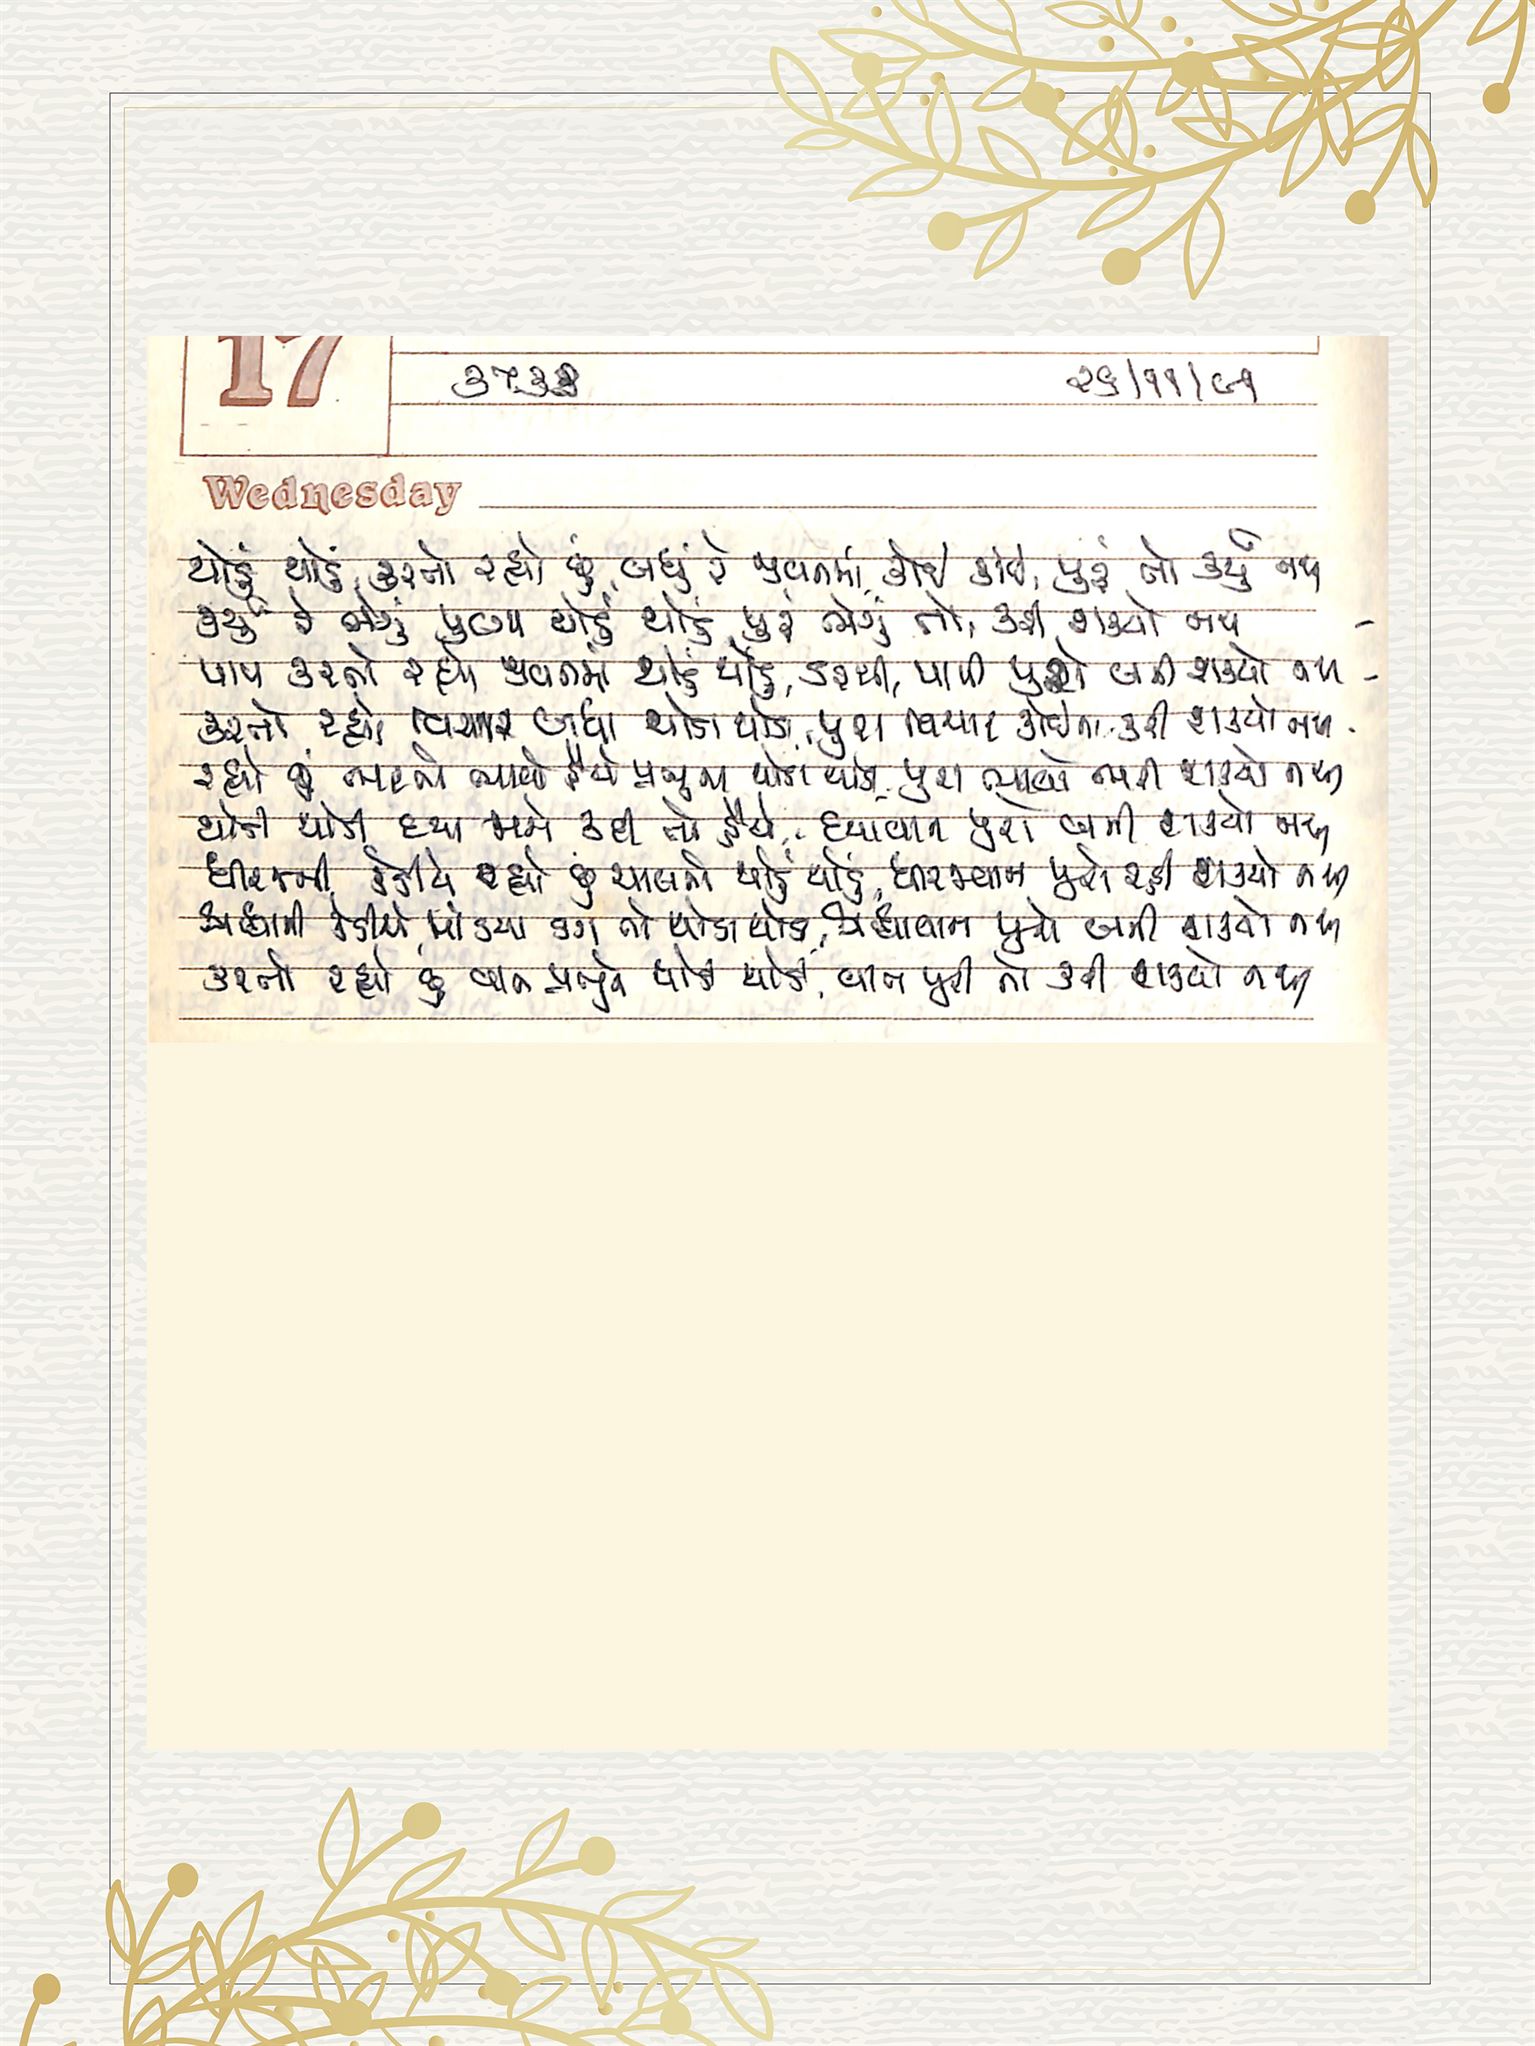 17
૩૫૩૩ ૨૯/૧૧/૯૧
Wednesday
થોડું થોડું, કરતો રહ્યો છું, બધું રે જીવનમાં, કોઈ કોઈ, પુરું તો કર્યું નથી
કર્યું રે ભેગું પુણ્ય થોડું થોડું, પુરું ભેગું તો, કરી શક્યો નથી -
પાપ કરતો રહ્યો જીવનમાં થોડું થોડું, ડરથી, પાપી પુરો બની શક્યો નથી -
કરતો રહ્યો, વિચાર બધા થોડા થોડા, પુરા વિચાર કોઈના કરી શક્યો નથી -
રહ્યો છું ભરતો ભાવો હૈયે પ્રભુના થોડા થોડા, પુરા ભાવો ભરી શક્યો નથી
થોડી થોડી દયા ધરી તો હૈયે, દયાવાન પુરો બની શક્યો નથી
ધીરજની કેડીયે રહ્યો છું ચાલતો થોડું થોડું, ધીરજવાન પુરો રહી શક્યો નથી
શ્રદ્ધાની કેડીયે, માંડયા ડગ તો થોડા થોડા, શ્રદ્ધાવાન પુરો બની શક્યો નથી
કરતો રહ્યો છું વાત પ્રભુને થોડી થોડી, વાત પુરી તો કરી શક્યો નથી